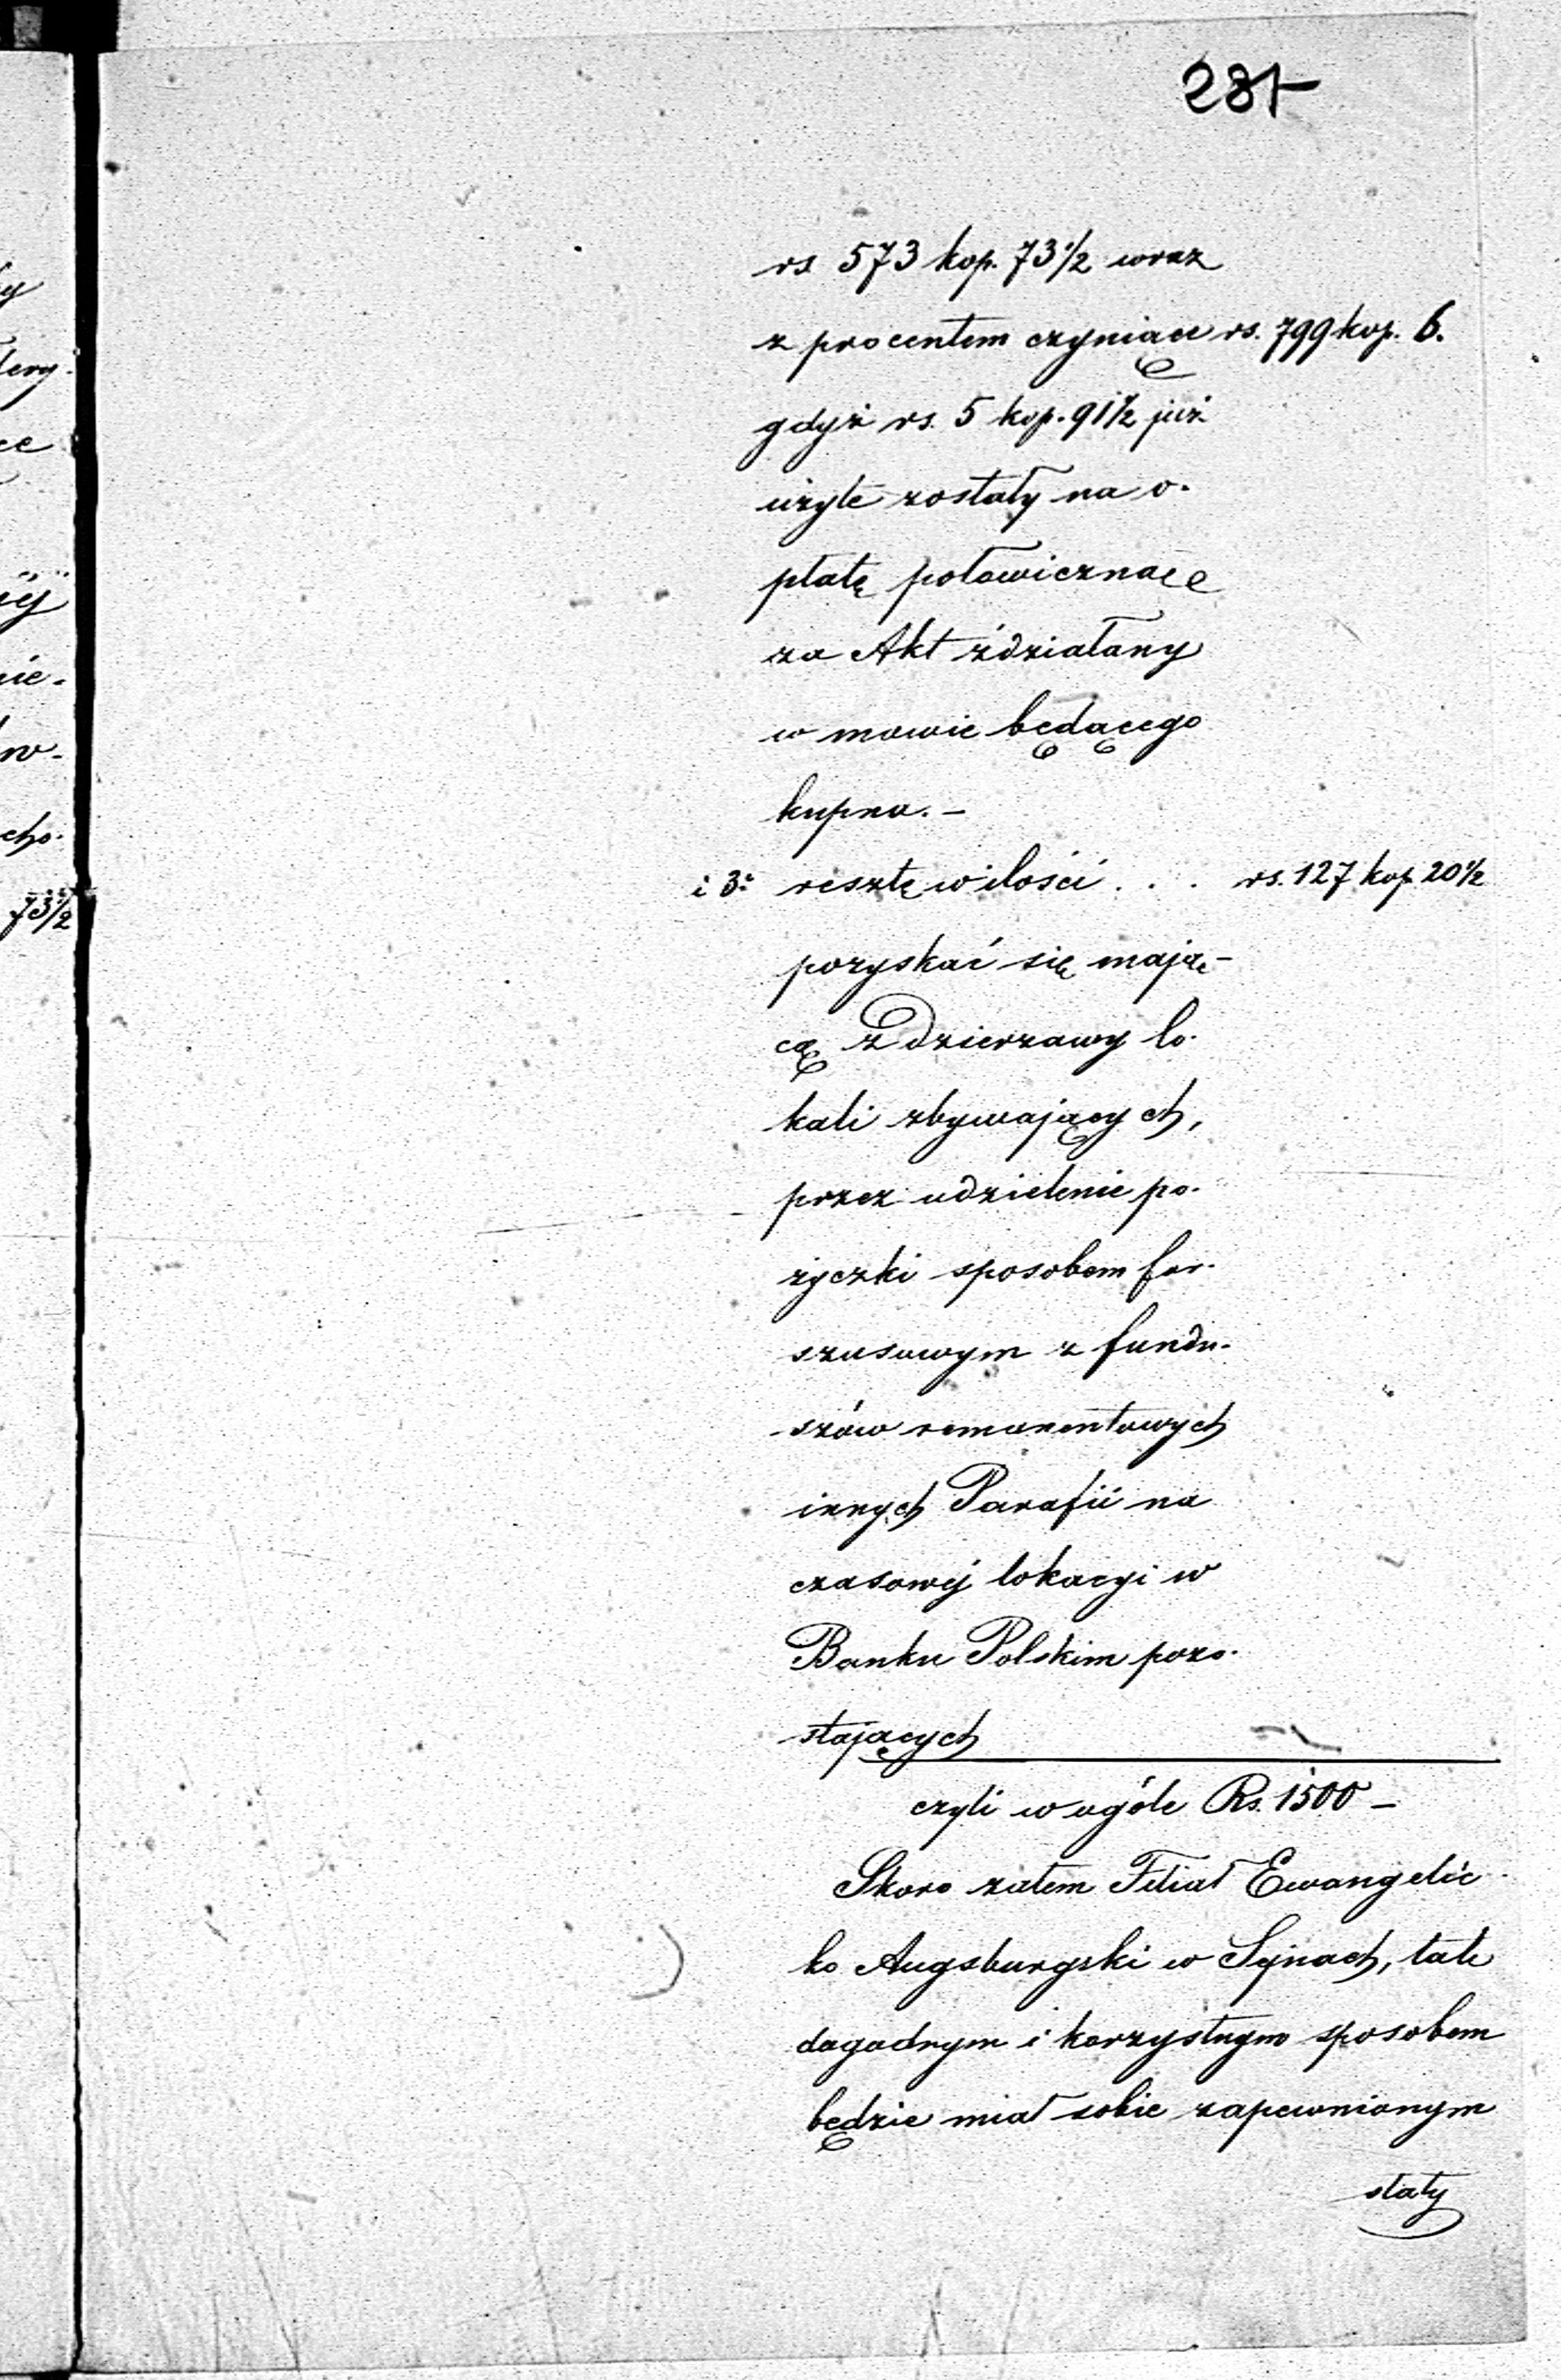 281
rs. 573 kop. 73 1/2 wraz
z procentem czyniące rs. 799 kop. 6.
gdyż rs. 5 kop. 91 1/2 już
użyte zostały na o-
płatę połowiczną
za Akt zdziałany
w mowie będącego
kupna. -
i 3: resztę w ilości . . . rs. 127 kop. 20 1/2
pozyskać się mają-
cą z Dzierzawy lo-
kali zbywających,
przez udzielenie po-
życzki sposobem for-
szusowym z fundu-
szów remanentowych
innych Parafii na
czasowéj lokacyi w
Banku Polskim pozo-
stających
czyli w ogóle Rs. 1500 -
Skoro zatem Filiał Ewangelic-
ko Augsburgski w Sejnach, tak
dogodnym i korzystnym sposobem
będzie miał sobie zapewnionym
stały